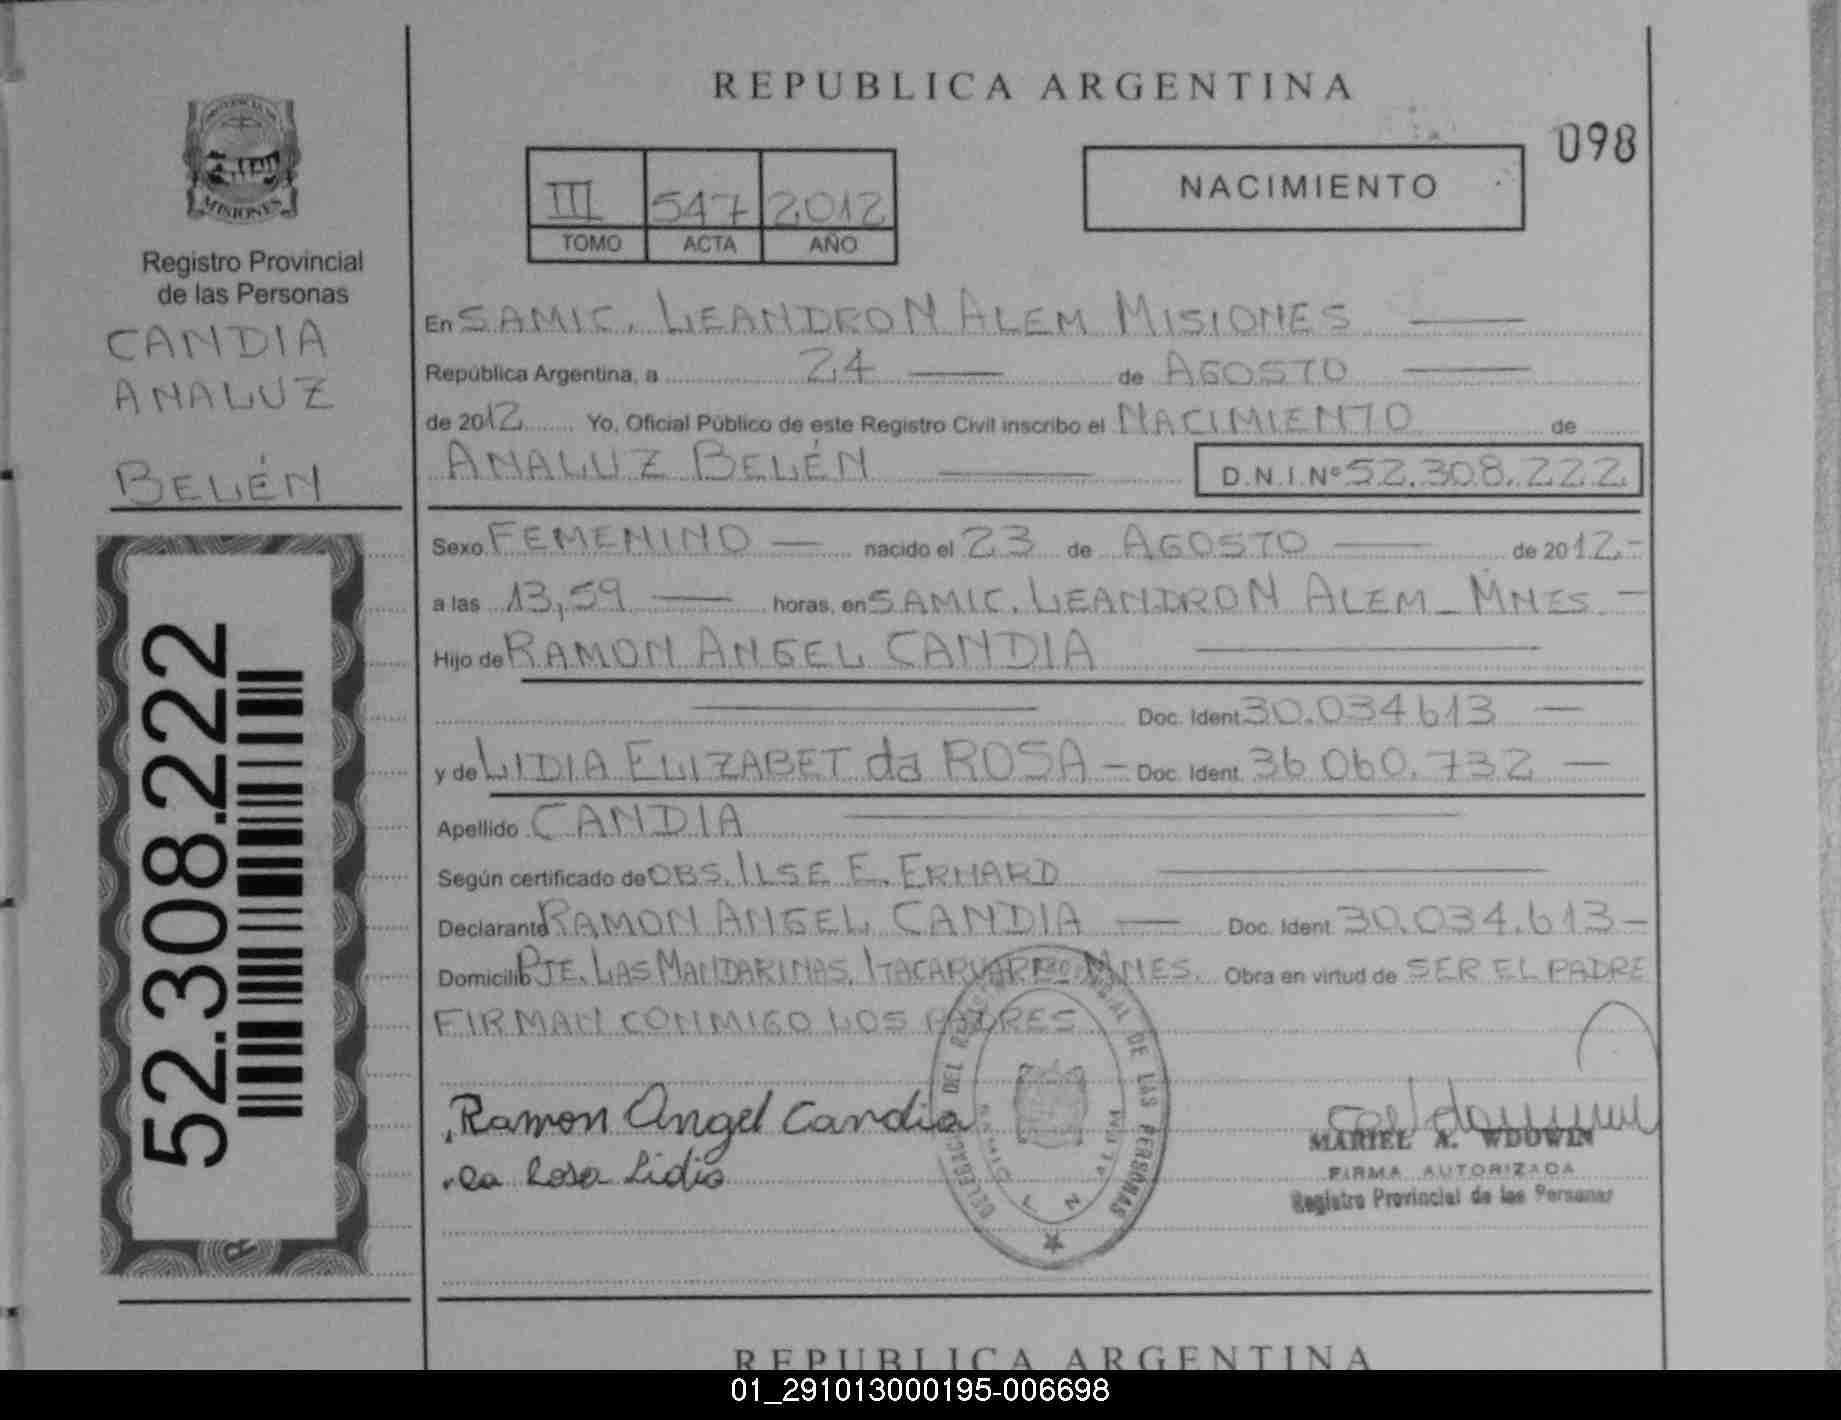 REPUBLICA ARGENTINA
098
III 547 2012
TOMO ACTA AÑO
NACIMIENTO
PROVINCIA
MISIONES
Registro Provincial
de las Personas
CANDIA
ANALUZ
BELÉN
52.308.222
En SAMIC. LEANDRO N ALEM MISIONES
República Argentina, a 24 de AGOSTO
de 2012 Yo, Oficial Público de este Registro Civil inscribo el NACIMIENTO de
ANALUZ BELÉN D.N.I.Nº 52.308.222
Sexo FEMENINO nacido el 23 de AGOSTO de 2012-
a las 13,59 horas, en SAMIC. LEANDRO N ALEM - MNES -
Hijo de RAMON ANGEL CANDIA
Doc. Ident. 30.034613
y de LIDIA ELIZABET da ROSA - Doc. Ident. 36060.732
Apellido CANDIA
Según certificado de OBS. ILSE E. ERHARD
Declarante RAMON ANGEL CANDIA Doc. Ident. 30.034.613-
Domicilio PJE. LAS MANDARINAS. ITACARUARE MNES. Obra en virtud de SER EL PADRE
FIRMAN CONMIGO LOS PADRES
Ramon Angel Candia
da Rosa Lidia
DE LAS PERSONAS
MARIEL A. WDOWIN
FIRMA AUTORIZADA
Registro Provincial de las Personas
REPUBLICA ARGENTINA
01_291013000195-006698